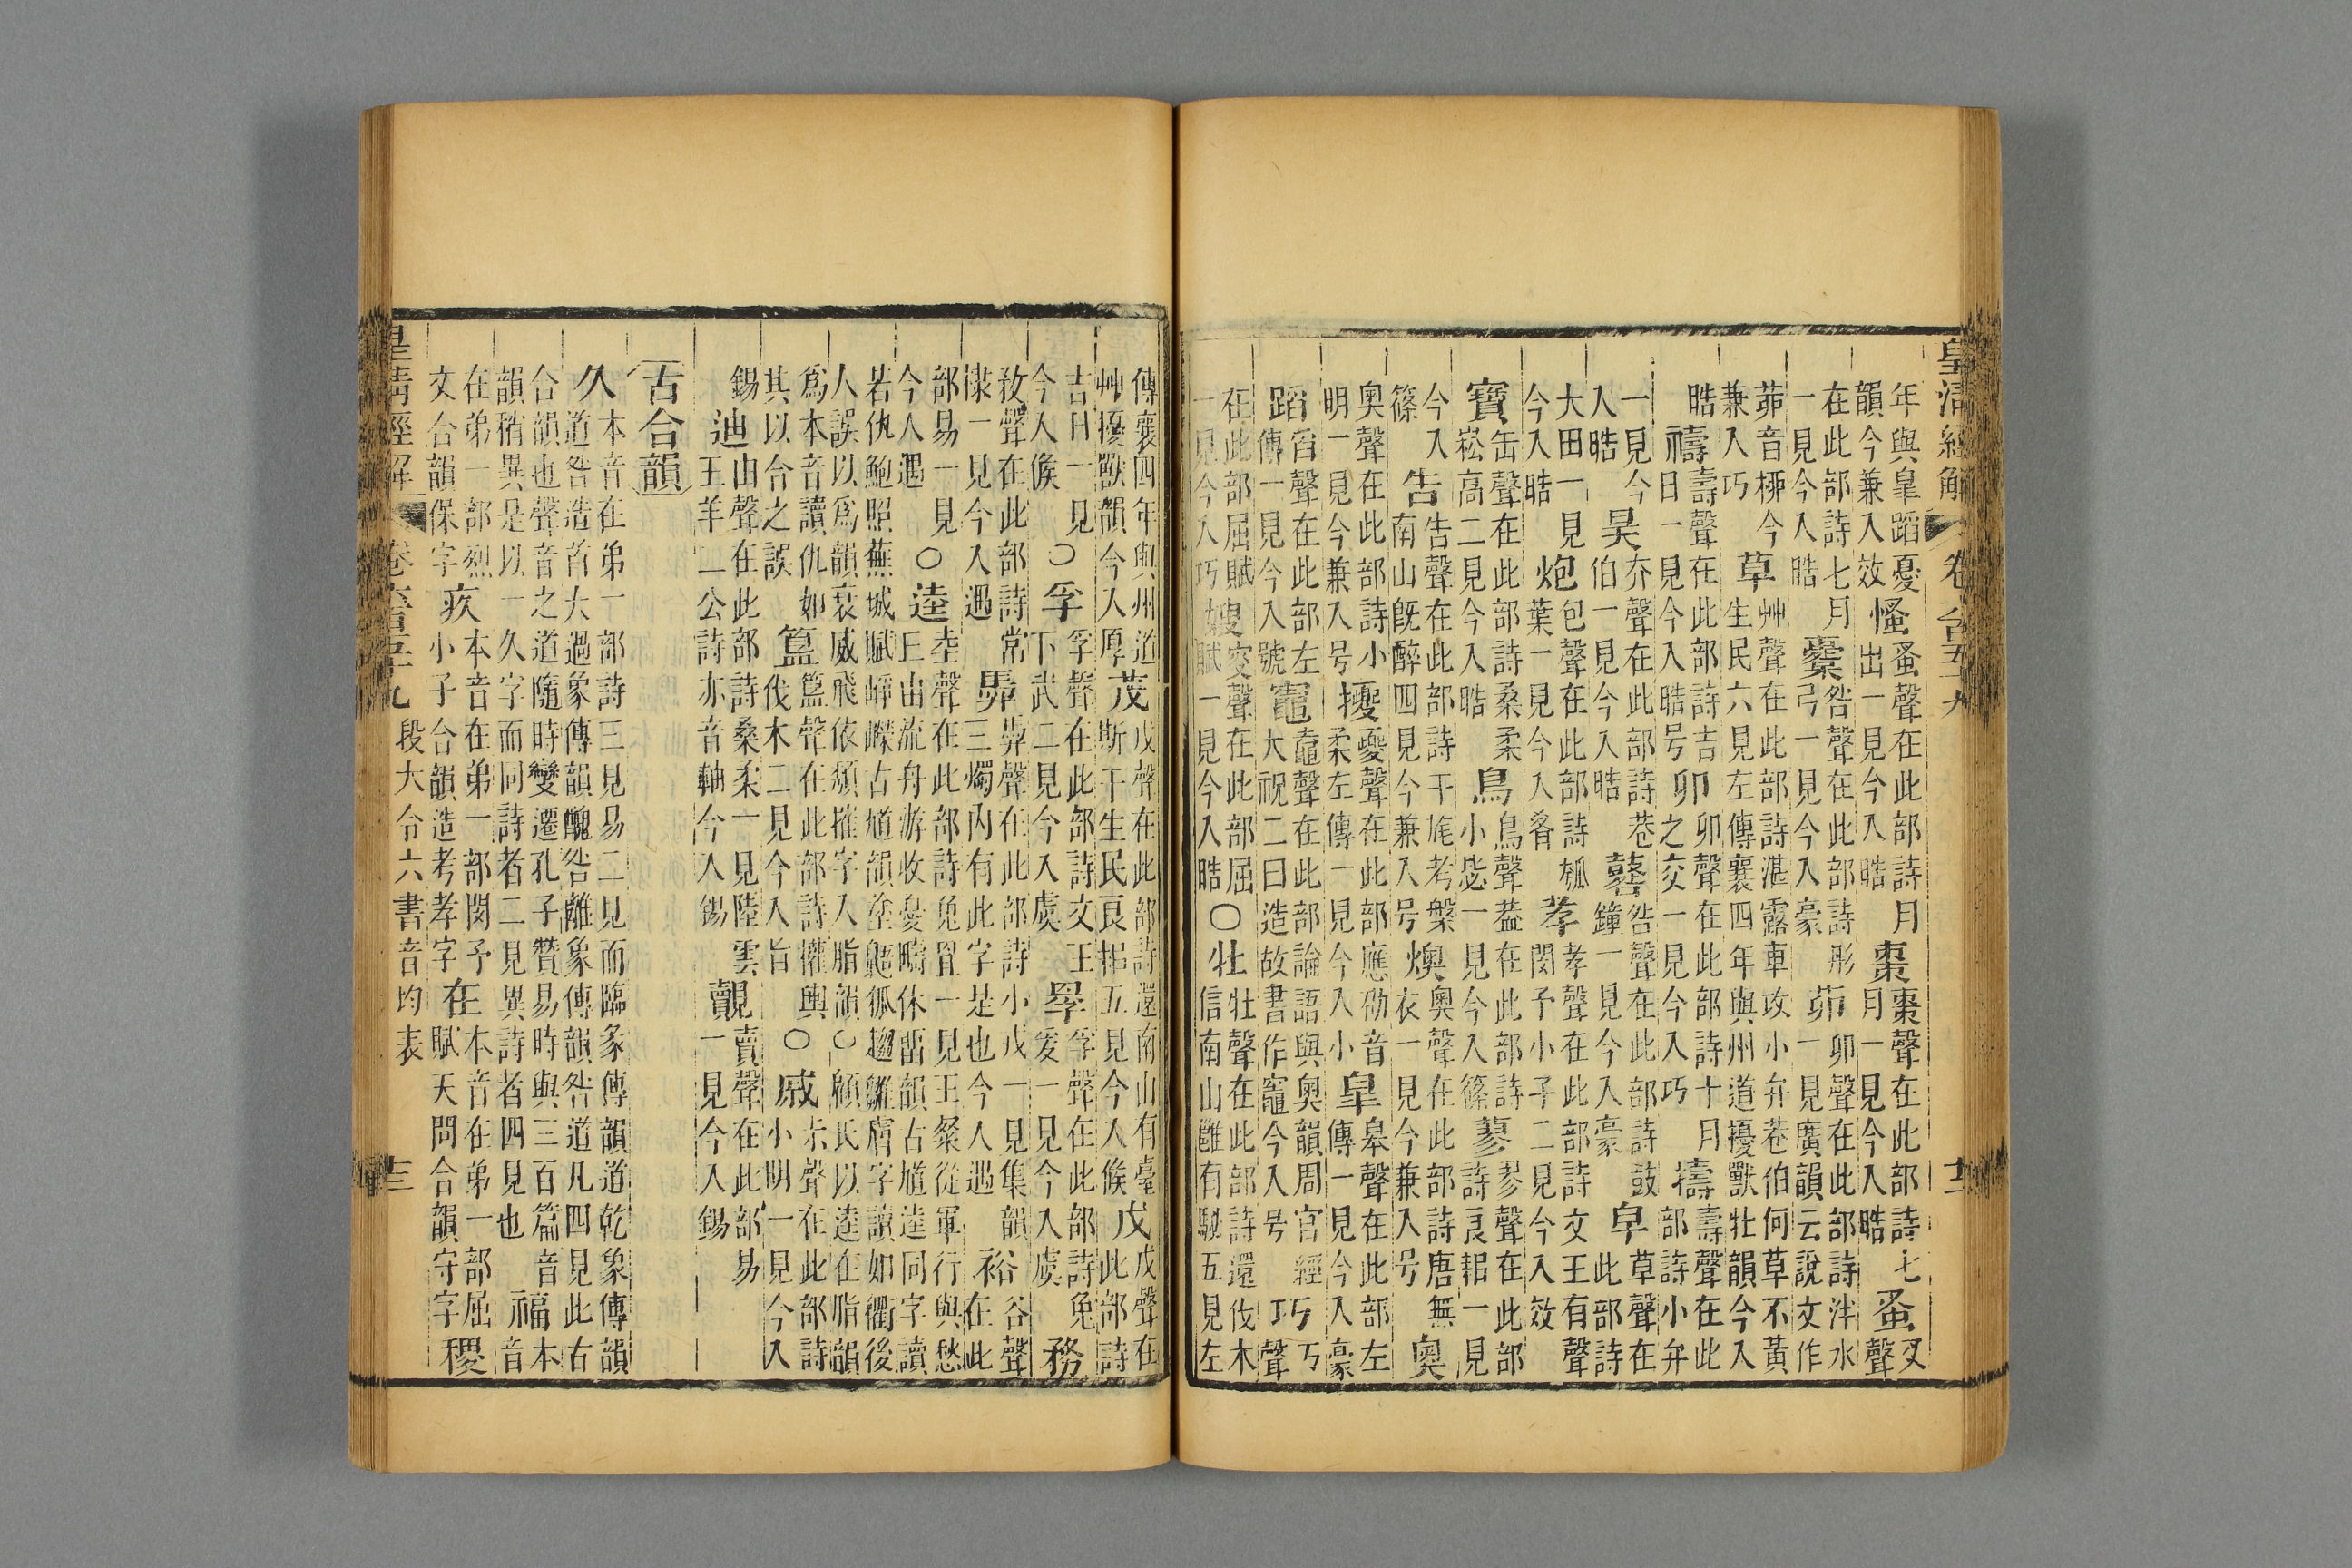 皇清經解 卷六百五十九 十二
年與皐蹈憂韻今兼入效慅蚤聲在此部詩月出一見今入晧棗棗聲在此部詩七月一見今入晧蚤㕚聲
在此部詩七月一見今入晧櫜咎聲在此部詩彤弓一見今入豪茆卯聲在此部詩泮水一見廣韻云說文作
茆音桺今兼入巧草艸聲在此部詩湛露車攻小弁巷伯何草不黃生民六見左傳襄四年與州道擾獸牡韻今入
晧禱壽聲在此部詩吉日一見今入晧号卯卯聲在此部詩十月之交一見今入巧擣壽聲在此部詩小弁
一見今入晧昊夰聲在此部詩巷伯一見今入晧鼛咎聲在此部詩鼓鐘一見今入豪皁草聲在此部詩
大田一見今入晧炮包聲在此部詩瓠葉一見今入肴孝孝聲在此部詩文王有聲閔予小子二見今入效
寶缶聲在此部詩桑柔崧高二見今入晧鳥鳥聲葢在此部詩小毖一見今入篠蓼翏聲在此部詩良耜一見
今入篠告告聲在此部詩干旄考槃南山旣醉四見今兼入号燠奧聲在此部詩唐無衣一見今兼入号奧
奧聲在此部詩小明一見今兼入号擾夒聲在此部應劭音柔左傳一見今入小皐皋聲在此部左傳一見今入豪
蹈舀聲在此部左傳一見今入號竈鼀聲在此部論語與奧韻周官經大祝二曰造故書作竈今入号巧丂聲
在此部屈賦一見今入巧嫂叟聲在此部屈賦一見今入晧〇牡牡聲在此部詩還伐木信南山雝有駜五見左
傳襄四年與州道艸擾獸韻今入厚茂戊聲在此部詩還南山有臺斯干生民良耜五見今入候戊戊聲在此部詩
吉日一見今入候〇孚孚聲在此部詩文王下武二見今入虞罦孚聲在此部詩兔爰一見今入虞務
敄聲在此部詩常棣一見今入遇馵馵聲在此部詩小戎一見集韻三燭內有此字是也今人遇裕谷聲在此
部易一見今入遇〇逵坴聲在此部詩兔罝一見王粲從軍行與愁王由流舟游收憂疇休畱韻古馗逵同字讀
若仇鮑照蕪城賦崢嶸古馗韻塗狐趨雛膺字讀如衢後人誤以爲韻衰威飛依頹摧字入脂韻〇顧氏以逵在脂韻
爲本音讀仇如其以合之誤簋簋聲在此部詩權輿伐木二見今入旨〇戚尗聲在此部詩小明一見今入
錫迪由聲在此部詩桑柔一見陸雲王羊二公詩亦音軸今入錫覿賣聲在此部易一見今入錫
古合韻
久本音在弟一部詩三見易二見而臨象傳韻道乾象傳韻道咎造首大過象傳韻醜咎離象傳韻咎道凡四見此古
合韻也聲音之道隨時變遷孔子贊易時與三百篇音韻稍異是以一久字而同詩者二見異詩者四見也福本音
在弟一部烈文合韻保字疚本音在弟一部閔予小子合韻造考孝字在本音在弟一部屈賦天問合韻守字稷
皇清經解 卷六百五十九 段大令六書音均表 十三